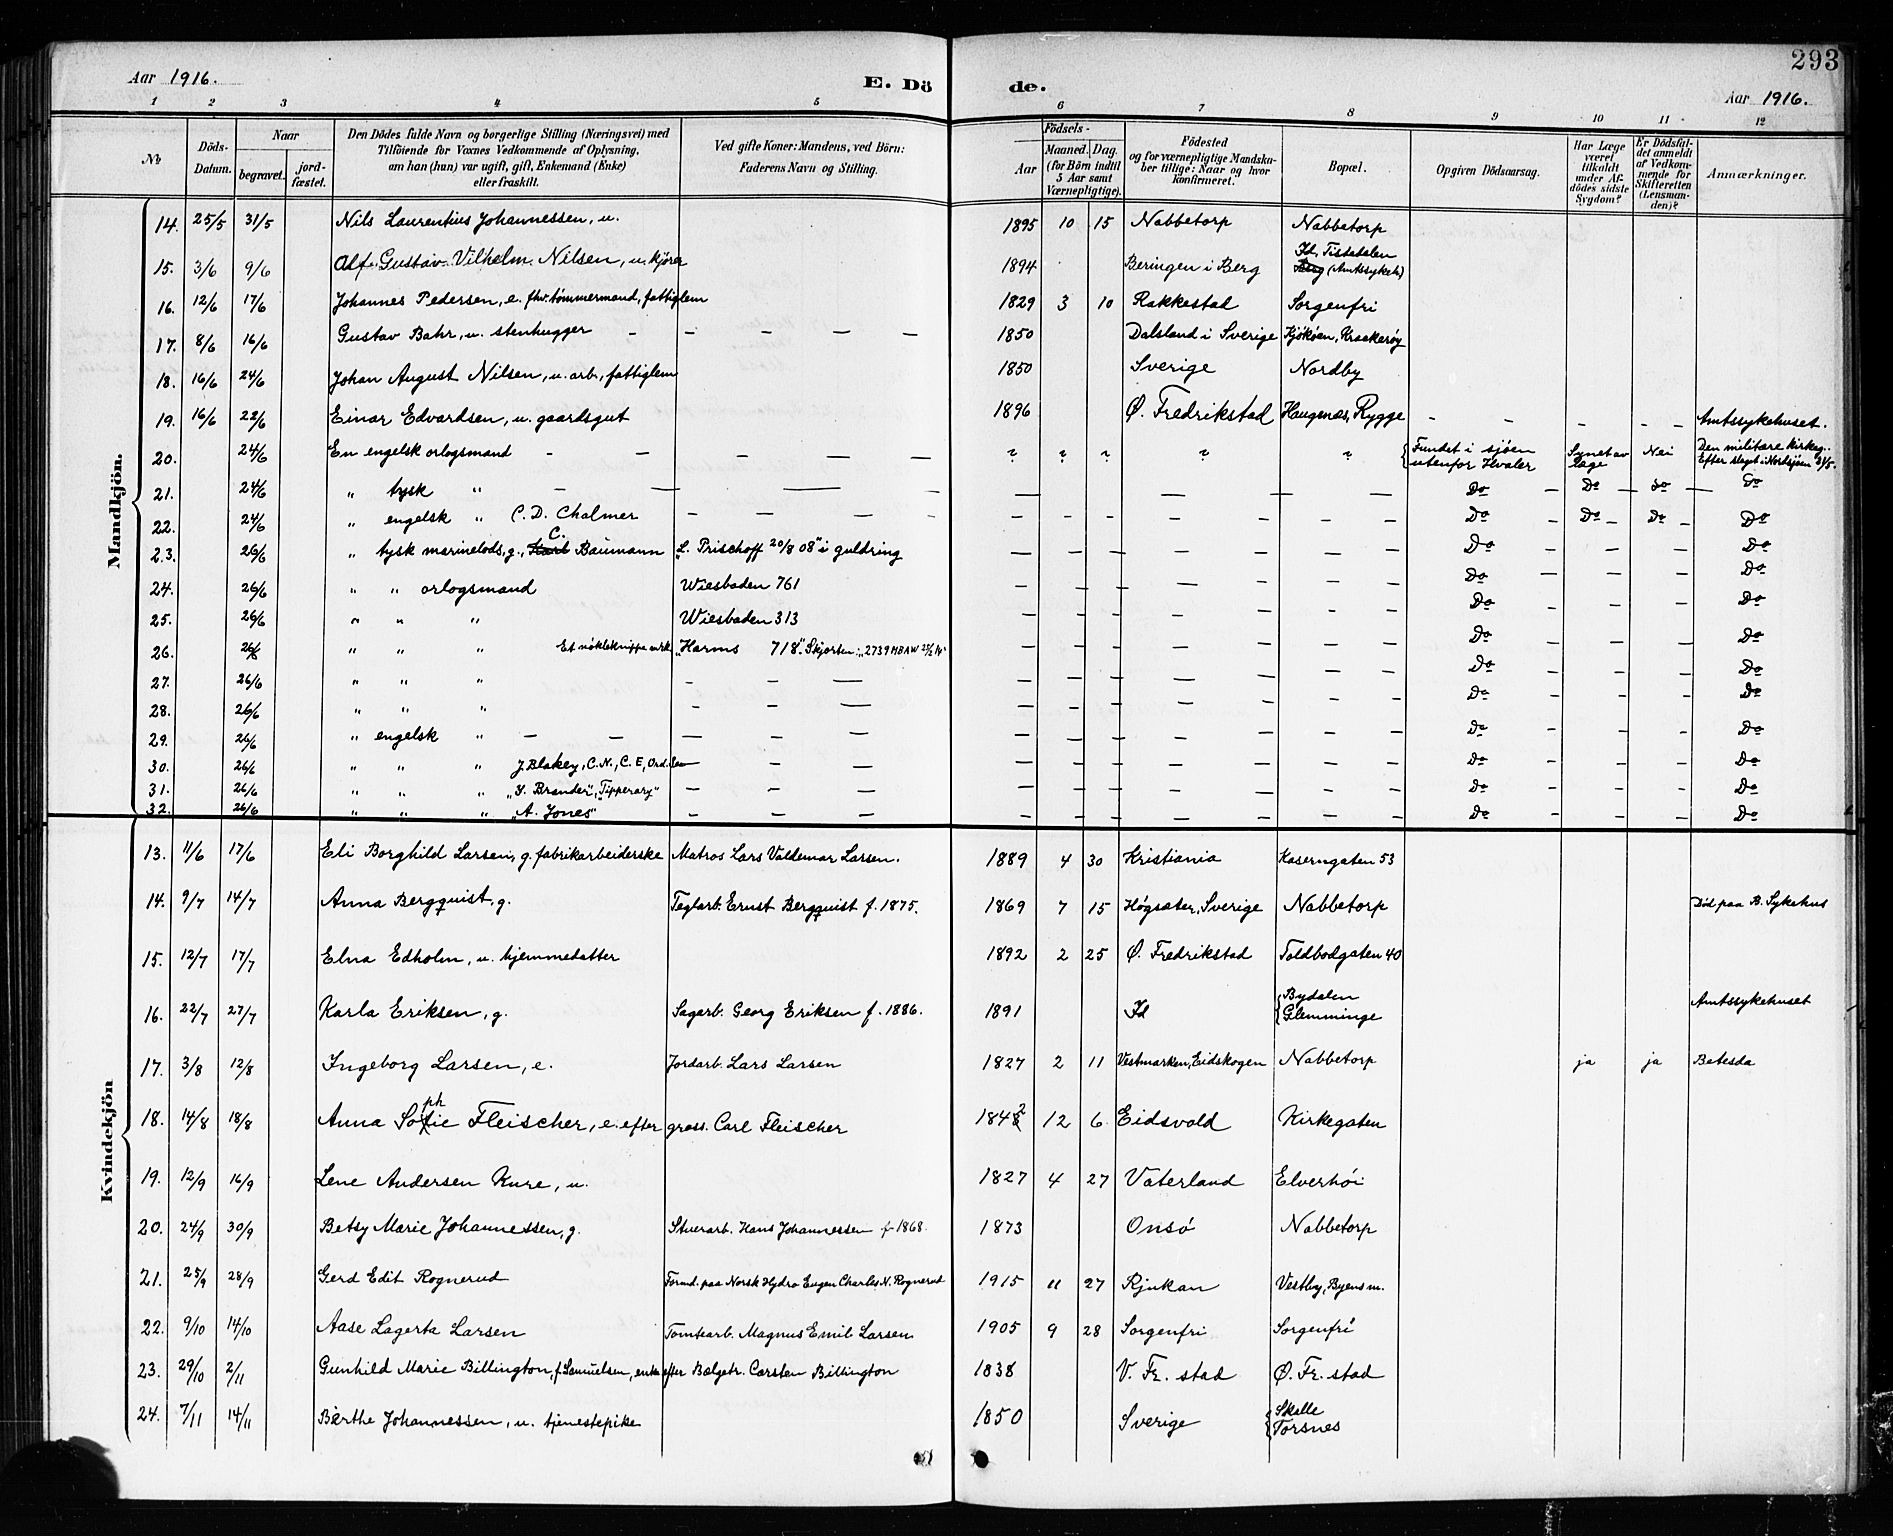 293
Aar 1916.
E. Dö
de.
Aar 1916.
1 2 3 4 5 6 7 8 9 10 11 12
No
Döds-Datum.
Naar
begravet.
jord-fæstet.
Den Dödes fulde Navn og borgerlige Stilling (Næringsvei) med
Tilföiende for Voxnes Vedkommende af Oplysning,
om han (hun) var ugift, gift, Enkemand (Enke)
eller fraskilt.
Ved gifte Koner: Mandens, ved Börn:
Faderens Navn og Stilling.
Födsels-
Aar
Maaned. Dag.
(for Börn indtil
5 Aar samt
Værnepligtige).
Födested
og for værnepligtige Mandska-
ber tillige: Naar og hvor
konfirmeret.
Bopæl.
Opgiven Dödsaarsag.
Har Læge
været
tilkaldt
under Af-
dödes sidste
Sygdom?
Er Dödsfal-
det anmeldt
af Vedkom-
mende for
Skifteretten
(Lensman-
den)?
Anmærkninger.
Mandkjön.
14. 25/5 31/5 Nils Laurentius Johannessen, u. 1895 10 15 Nabbetorp Nabbetorp
15. 3/6 9/6 Alf Gustav Vilhelm Nilsen, u. kjører 1894 Beringen i Berg Id, Tistedalen Berg (Amtssykeh)
16. 12/6 17/6 Johannes Pedersen, e. fhv. tømmermand, fattiglem 1829 3 10 Rakkestad Sorgenfri
17. 8/6 16/6 Gustav Bahr, u. stenhugger – – – – – 1850 Dalsland i Sverige Kjøkøen, Kraakerøy
18. 16/6 24/6 Johan August Nilsen, u. arb, fattiglem 1850 Sverige Nordby
19. 16/6 22/6 Einar Edvardsen, u. gaardsgut 1896 Ø. Fredrikstad Haugenæs, Rygge – – – – – Amtssykehuset.
20. 24/6 En engelsk orlogsmand – – – – – ? ? ? ? ? Fundet i sjøen utenfor Hvaler Synet av læge Nei Den militære kirkeg.. Efter slaget i Nordsjøen 31/5.
21. 24/6 " tysk " – – – – – – – – – Do – Do – do – Do
22. 24/6 " engelsk " C. D. Chalmer – – – – – – – – – Do – Do – Do – Do
23. 26/6 " tysk marinelods, g., Karl C. Baumann "L. Prischoff 20/8 08" i guldring – – – – – Do – – – Do
24. 26/6 " " orlogsmand Wiesbaden 761 – – – – – Do – – – Do
25. 26/6 " " " Wiesbaden 313 – – – – – Do – – – Do
26. 26/6 " " " Et nøkleknippe mrk. "Harms 718". Skjorten: "2739 MBAW 23/2 14" – – – – – Do – – – Do
27. 26/6 " " " – – – – – – – – Do – – – Do
28. 26/6 " " " – – – – – – – – Do – – – Do
29. 26/6 " engelsk " – – – – – – – – – – Do – – – Do
30. 26/6 " " " J Blakey, C.N., C. E, Ord. Sea – – – – – – – Do – – – Do
31. 26/6 " " " "Y. Brander", "Tipperary" – – – – – – – – Do – – – Do
32. 26/6 " " " "A. Jones" – – – – – – – – Do – – – Do
Kvindekjön
13. 11/6 17/6 Eli Borghild Larsen, g. fabrikarbeiderske Matros Lars Valdemar Larsen. 1889 4 30 Kristiania Kaserngaten 53
14. 9/7 14/7 Anna Bergquist, g. Teglarb. Ernst Bergquist f. 1875. 1869 7 15 Høgsäter, Sverige Nabbetorp Død paa B. Sykehus
15. 12/7 17/7 Elna Edholm, u. hjemmedatter 1892 2 25 Ø. Fredrikstad Toldbodgaten 40
16. 22/7 27/7 Karla Eriksen, g. Sagarb. Georg Eriksen f. 1886. 1891 Id Bydalen Glemminge Amtssykehuset
17. 3/8 12/8 Ingeborg Larsen, e. Jordarb. Lars Larsen 1827 2 11 Vestmarken, Eidskogen Nabbetorp ja ja Betesda
18. 14/8 18/8 Anna Sophie Fleischer, e. efter gross. Carl Fleischer 1842 12 6 Eidsvold Kirkegaten
19. 12/9 16/9 Lene Andersen Kure, u. 1827 4 27 Vaterland Elverhöi
20. 24/9 30/9 Betsy Marie Johannessen, g. Stuerarb. Hans Johannessen f. 1868. 1873 Onsø Nabbetorp
21. 25/9 28/9 Gerd Edit Rognerud Formd. paa Norsk Hydro Eugen Charles N. Rognerud 1915 11 27 Rjukan Vestby, Byens m.
22. 9/10 14/10 Aase Lagerta Larsen Tomtearb. Magnus Emil Larsen 1905 9 28 Sorgenfri Sorgenfri
23. 29/10 2/11 Gunhild Marie Billington, f. Samuelsen, enke efter Bælgetr. Carsten Billington 1838 V. Fr. stad Ø. Fr. stad
24. 7/11 14/11 Berthe Johannessen, u. tjenestepike 1850 Sverige Skalle Torsnes